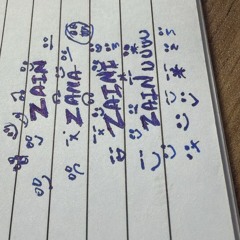 ZAIN
ZAMA
ZAINI
ZAINUUUU